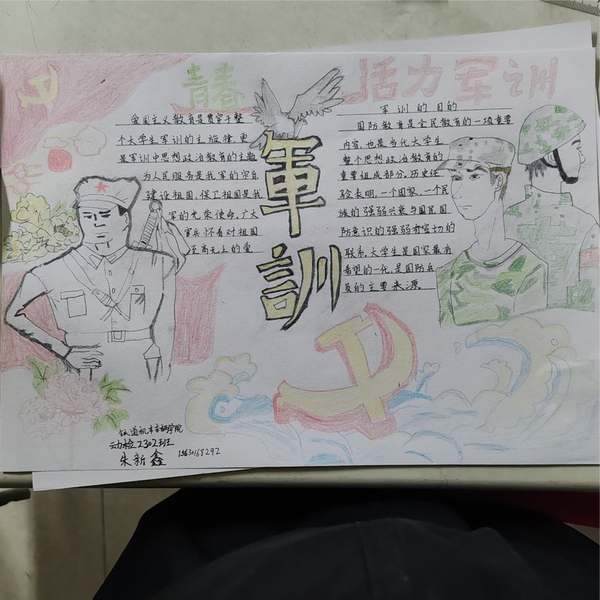 青春 活力军训
爱国主义教育是贯穿于整
个大学生军训的主旋律，更
是军训中思想政治教育的主题
为人民服务是我军的宗旨
建设祖国、保卫祖国是我
军的光荣使命，广大
官兵怀着对祖国
至高无上的爱
軍訓
军训的目的
国防教育是全民教育的一项重要
内容，也是当代大学生
整个思想政治教育的
重要组成部分，历史经
验表明，一个国家，一个民
族的强弱兴衰与国民国
防意识的强弱有密切的
联系，大学生是国家最有
希望的一代，是国防兵
员的主要来源
铁道机车车辆学院
动检2302班
朱新鑫